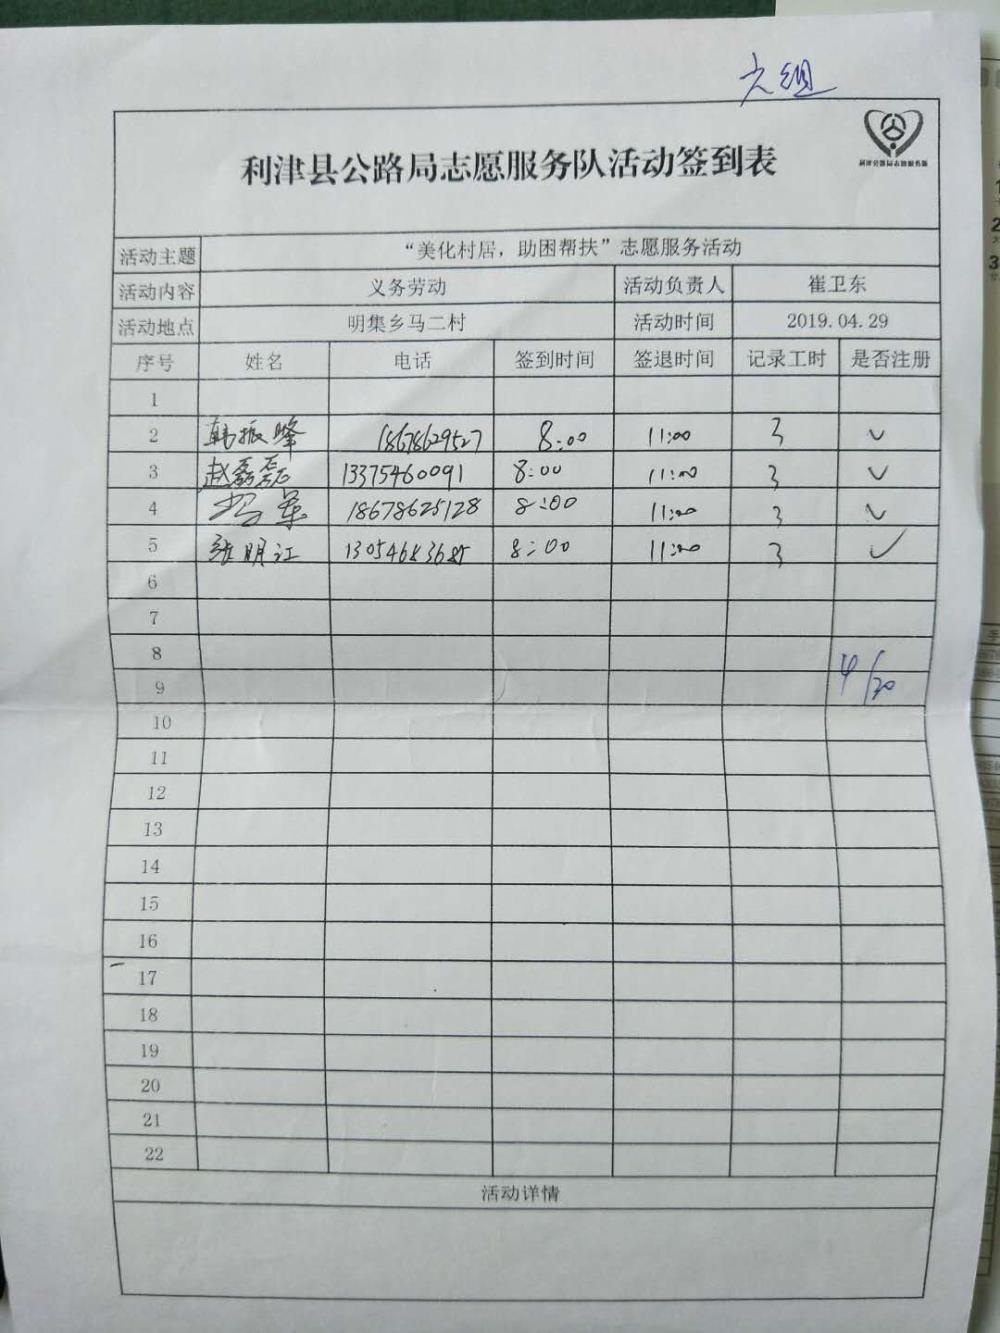 六组
利津县公路局志愿服务队活动签到表
利津公路局志愿服务队
活动主题 “美化村居，助困帮扶”志愿服务活动
活动内容 义务劳动 活动负责人 崔卫东
活动地点 明集乡马二村 活动时间 2019.04.29
序号 姓名 电话 签到时间 签退时间 记录工时 是否注册
1
2 韩振峰 18678629527 8:00 11:00 3 ✓
3 赵磊磊 13375460091 8:00 11:00 3 ✓
4 18678625128 8:00 11:00 3 ✓
5 张明江 13054683685 8:00 11:00 3 ✓
6
7
8
9 4/30
10
11
12
13
14
15
16
17
18
19
20
21
22
活动详情